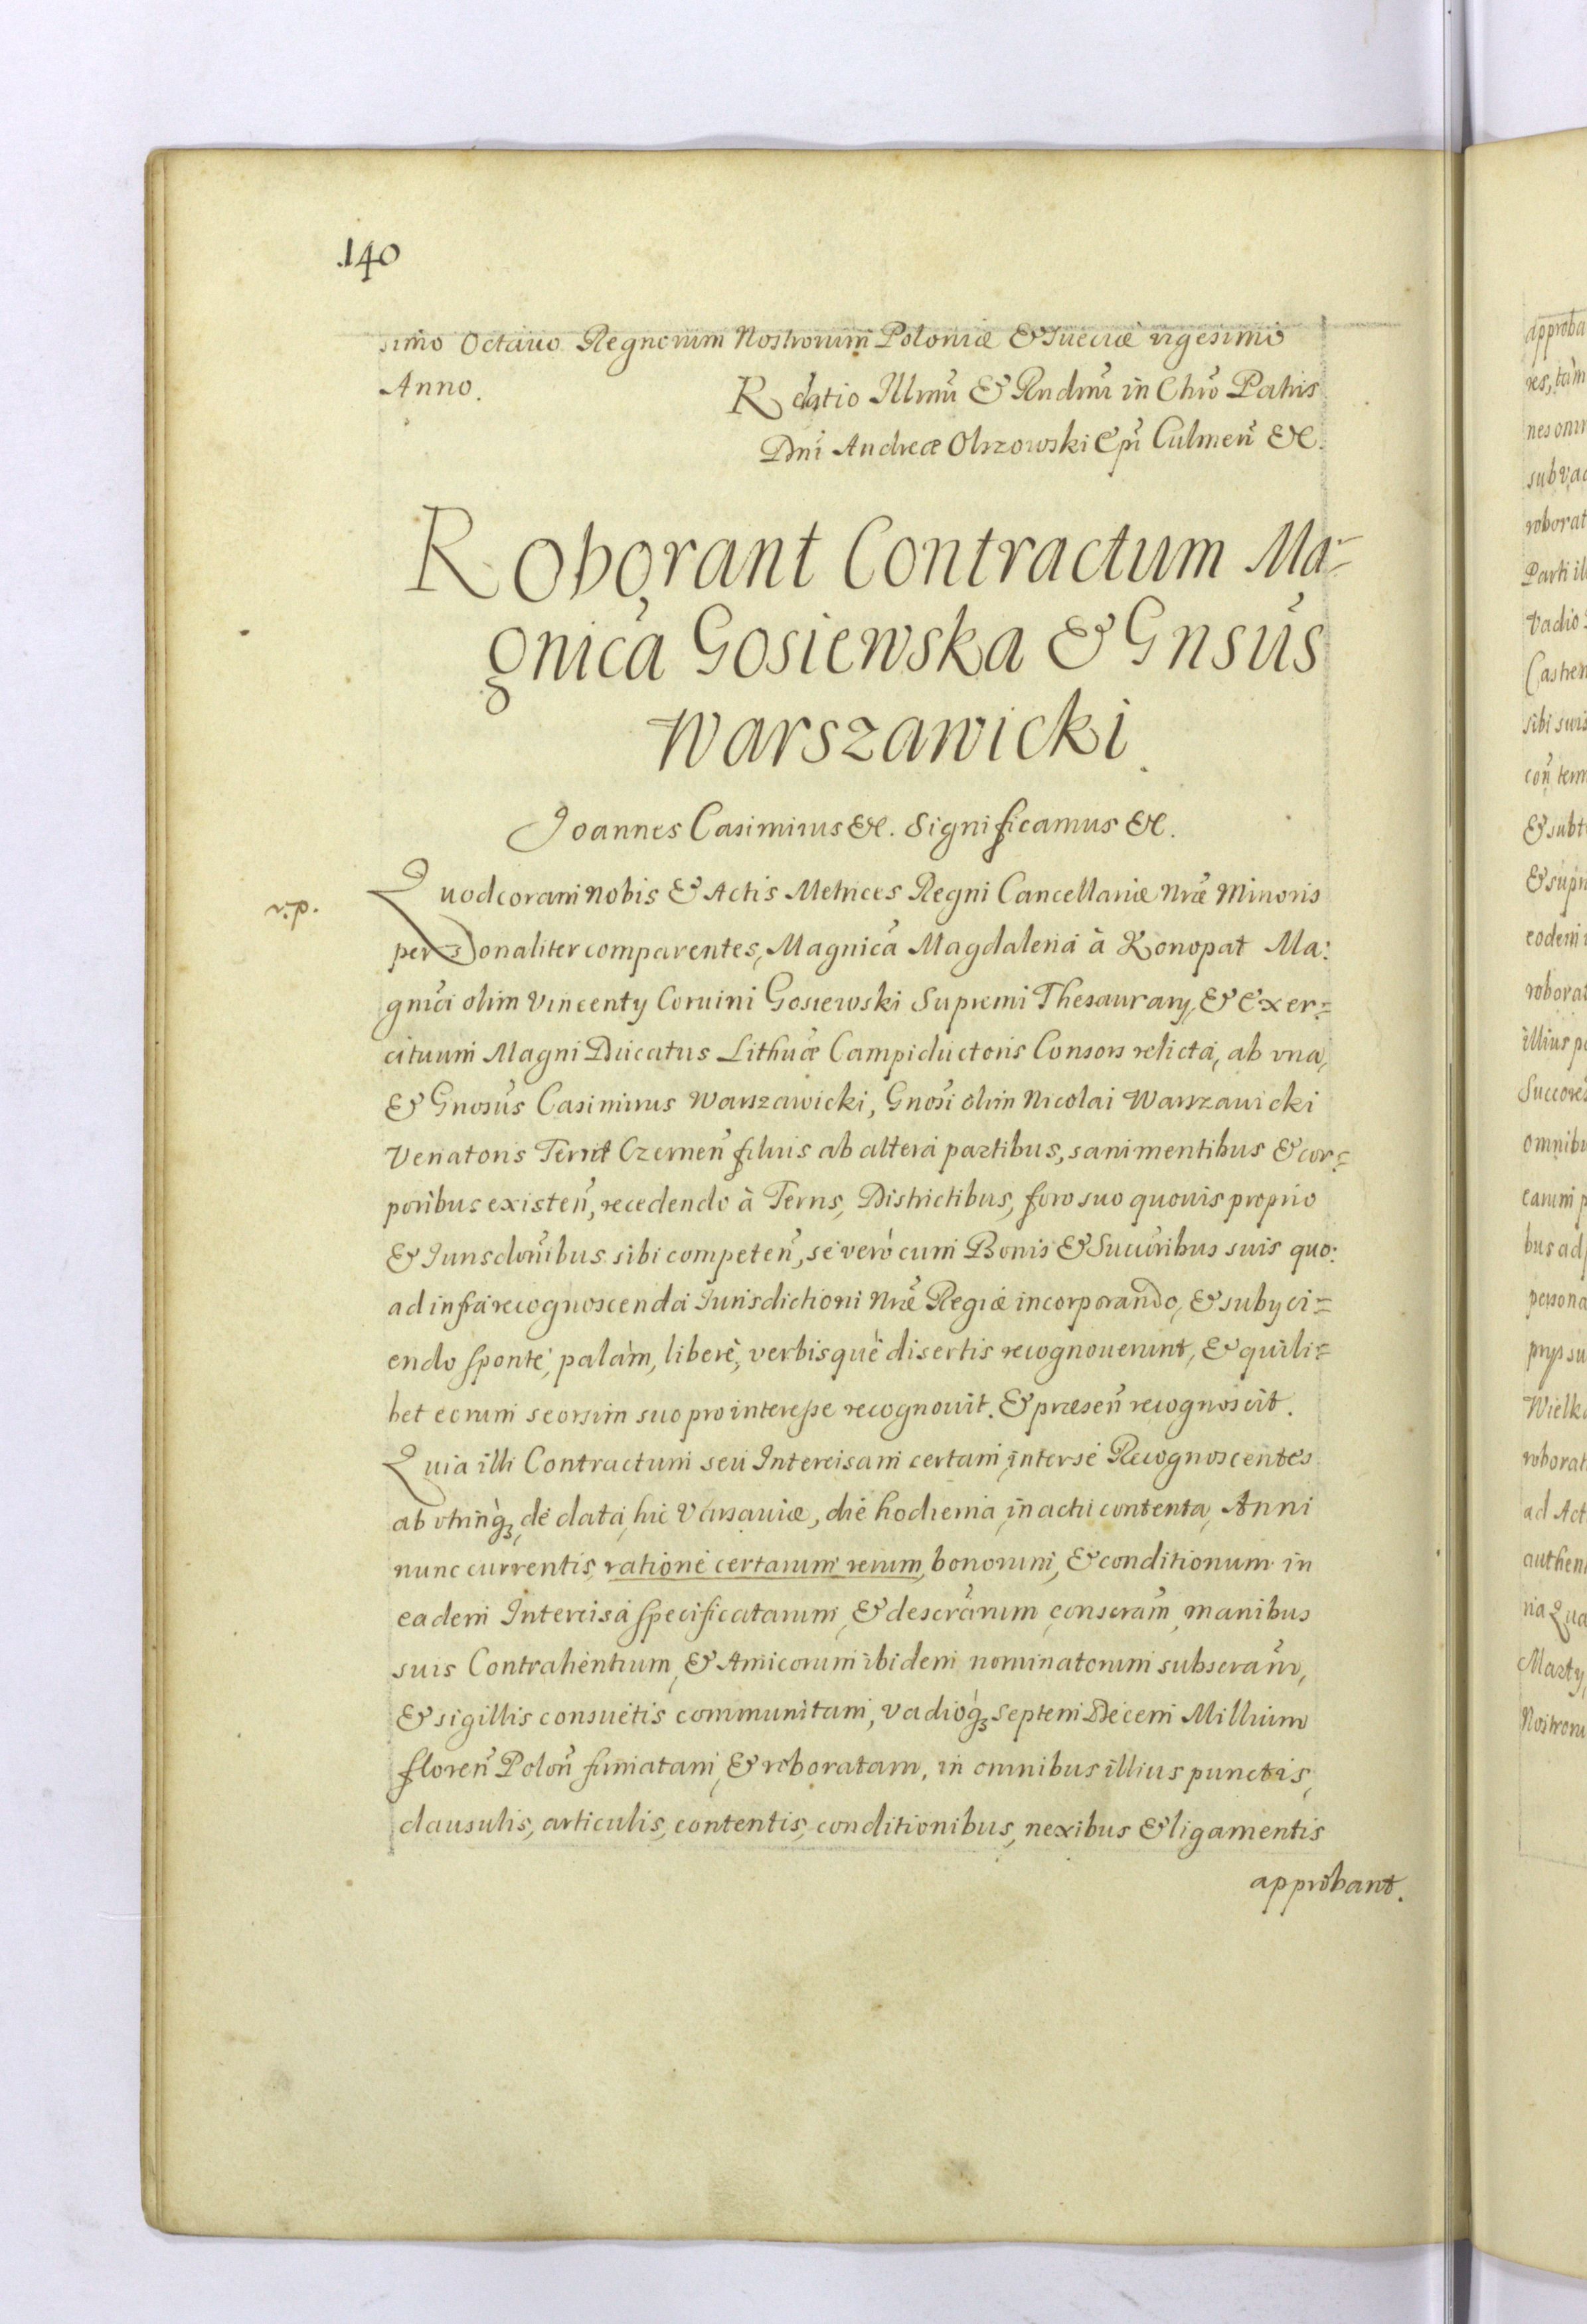 .140
simo Octauo Regnorum Nostrorum Poloniæ & Sueciæ vigesimo
Anno.
Relatio Illmi & Rndmi in Chro Patris
Dni Andreæ Olszowski Epi Culmen &c.
Roborant Contractum Ma-
gnica Gosiewska & Gnsus
Warszawicki.
Joannes Casimirus &c. Significamus &c.
r.p.
Quod coram nobis & Actis Metrices Regni Cancellariæ Nræ Minoris
personaliter comparentes, Magnica Magdalena à Konopat Ma:
gnici olim Vincenty Coruini Gosiewski Supremi Thesaurary, & Exer=
cituum Magni Ducatus Lithuæ Campiductoris Consors relicta, ab vna,
& Gnosus Casimirus Warszawicki, Gnosi olim Nicolai Warszauicki
Venatoris Terræ Czernen filius ab altera partibus, sani mentibus & cor=
poribus existen, recedendo à Terris, Districtibus, foro suo quouis proprio
& Jurisdonibus sibi competen, se verò cum Bonis & Succribus suis quo:
ad infra recognoscenda Jurisdictioni Nræ Regiæ incorporando, & subyci=
endo sponte, palàm, liberè, verbisquè disertis recognouerunt, & quili=
bet eorum seorsim suo pro interesse recognouit. & præsen recognoscit.
Quia illi Contractum seu Intercisam certam, inter se Recognoscentes
ab vtrinq, de data, hic Varsauiæ, die hodierna, in actu contenta, Anni
nunc currentis, ratione certarum rerum, bonorum, & conditionum in
eadem Intercisa specificatarum, & descrarum, conscram, manibus
suis Contrahentium, & Amicorum ibidem nominatorum subscram,
& sigillis consuetis communitam, vadioq, Septem Decem Millium
floren Polon firmatam, & roboratam, in omnibus illius punctis,
clausulis, articulis, contentis, conditionibus, nexibus & ligamentis
approbant.